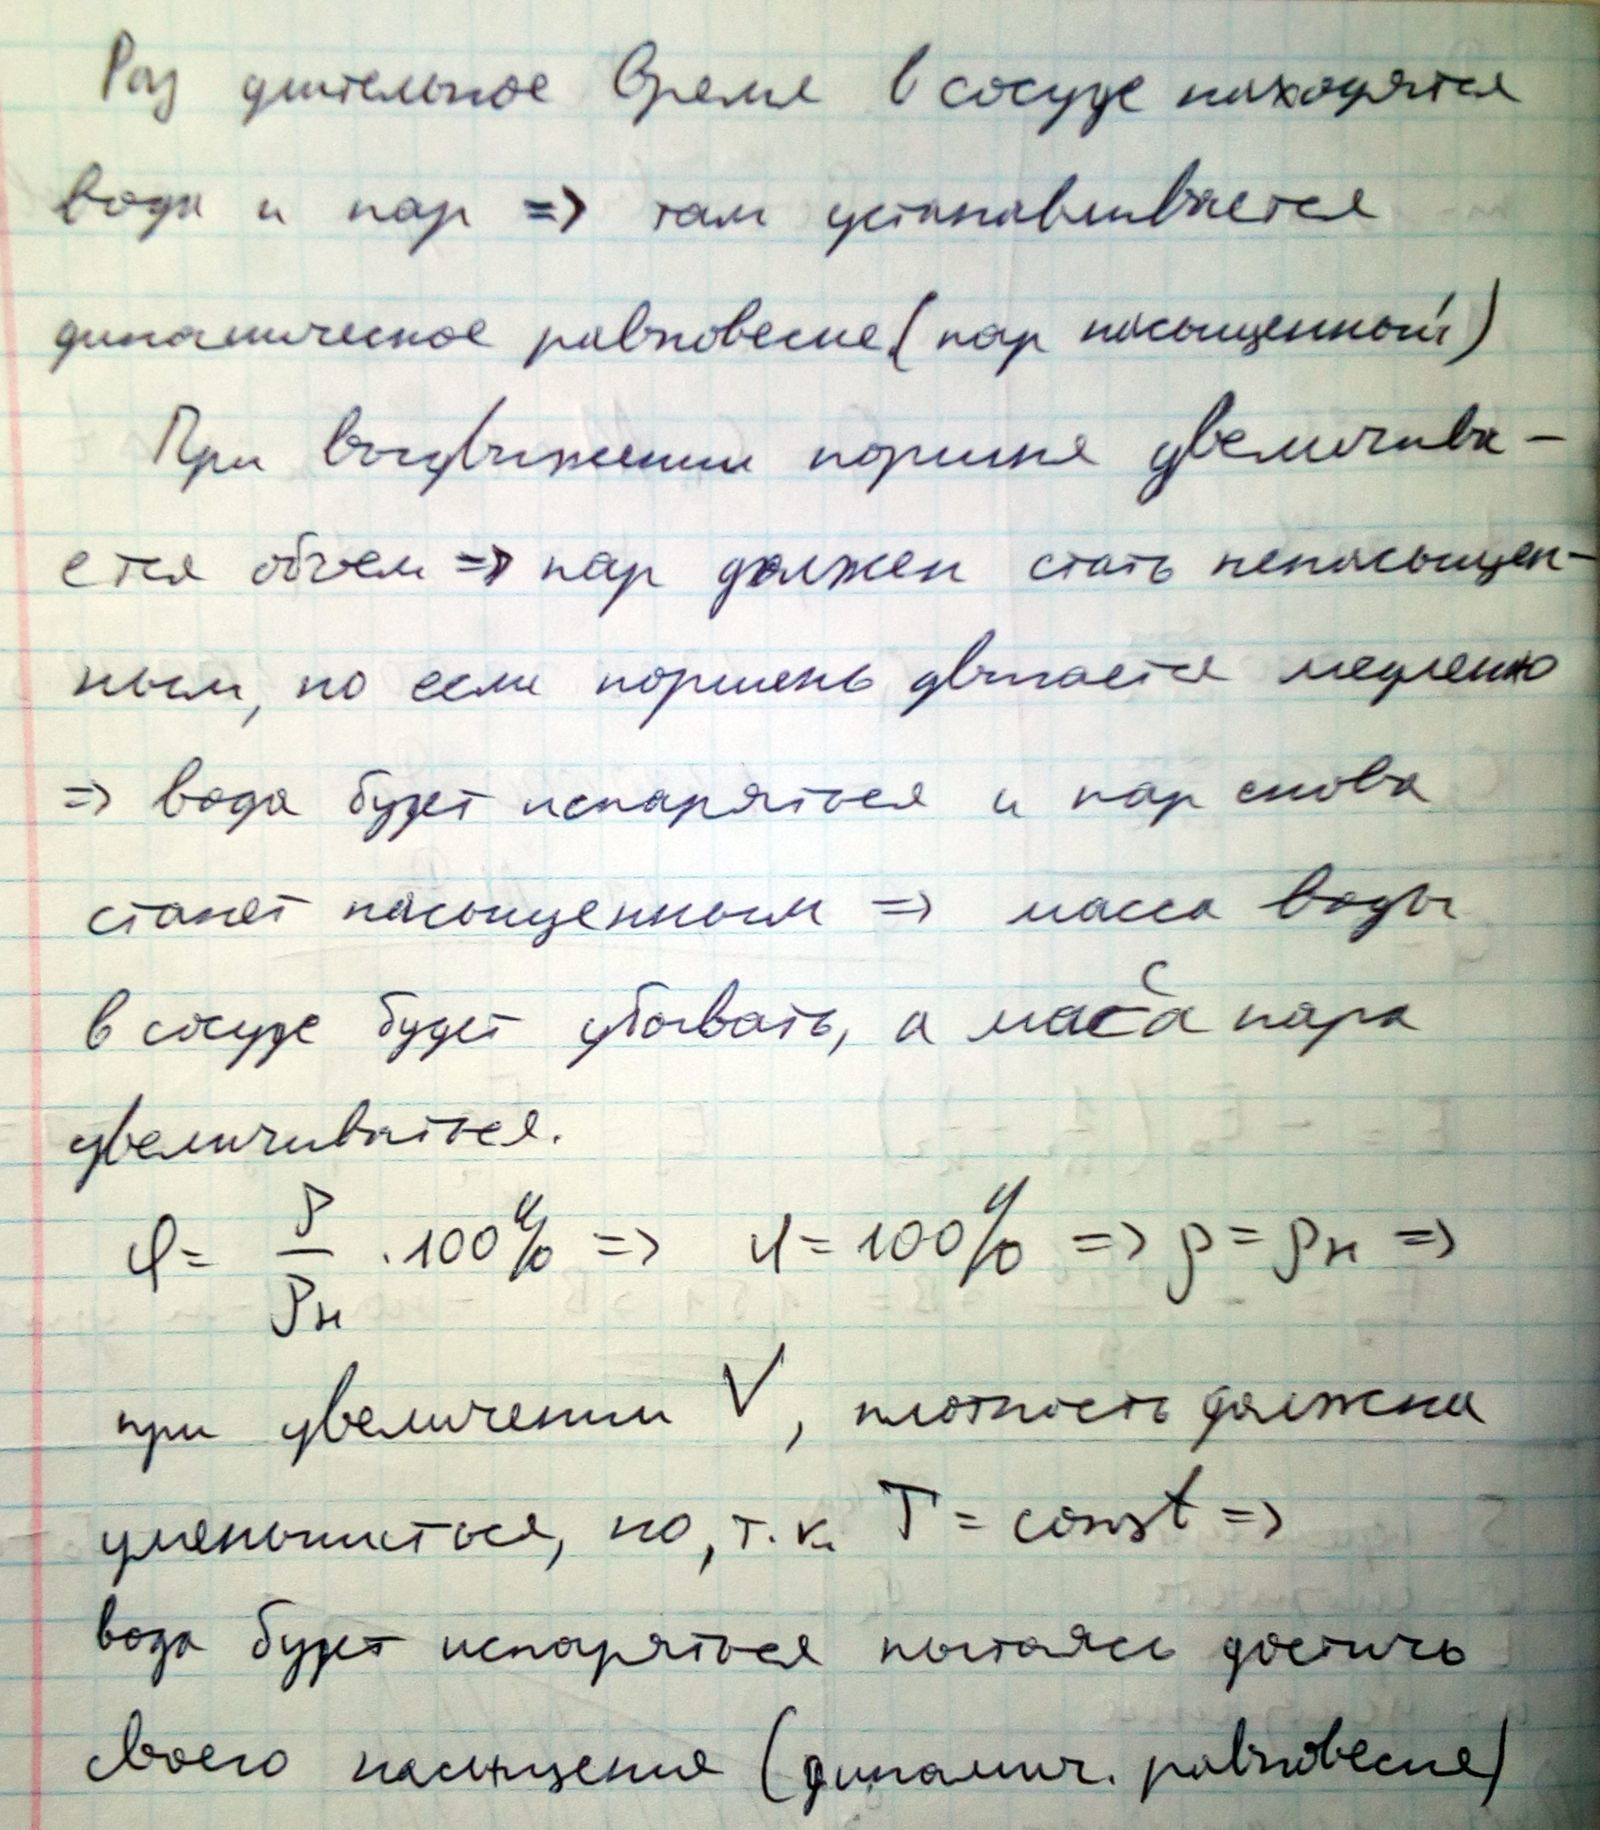 Раз длительное время в сосуде находятся
вода и пар => там устанавливается
динамическое равновесие (пар насыщенный)
При выдвижении поршня увеличива-
ется объем => пар должен стать ненасыщен-
ным, но если поршень двигается медленно
=> вода будет испаряться и пар снова
станет насыщенным => масса воды
в сосуде будет убывать, а масса пара
увеличиваться.
φ = ρ/ρн · 100% => φ = 100% => ρ = ρн =>
при увеличении V, плотность должна
уменьшиться, но, т.к. T = const =>
вода будет испаряться пытаясь достичь
своего насыщения (динамич. равновесие)